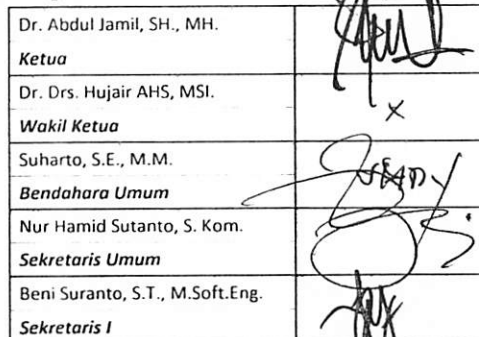 Dr. Abdul Jamil, SH., MH.
Ketua
Dr. Drs. Hujair AHS, MSI.
Wakil Ketua
Suharto, S.E., M.M.
Bendahara Umum
Nur Hamid Sutanto, S. Kom.
Sekretaris Umum
Beni Suranto, S.T., M.Soft.Eng.
Sekretaris I